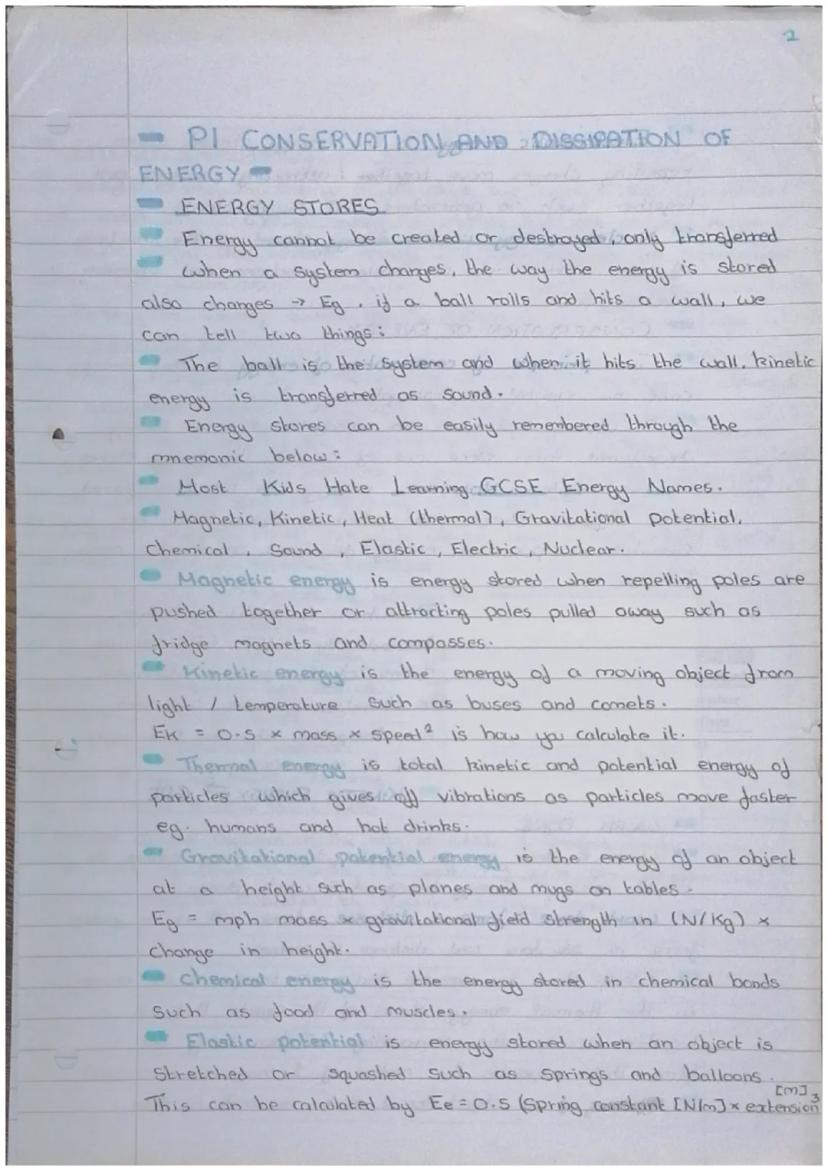 2
P1 CONSERVATION AND DISSIPATION OF
ENERGY
ENERGY STORES
Energy cannot be created or destroyed, only transferred
when a system changes, the way the energy is stored
also changes → Eg, if a ball rolls and hits a wall, we
can tell two things:
The ball is the system and when it hits the wall, kinetic
energy is transferred as sound.
Energy stores can be easily remembered through the
mnemonic below:
Most Kids Hate Learning GCSE Energy Names.
Magnetic, Kinetic, Heat (thermal), Gravitational potential,
Chemical, Sound, Elastic, Electric, Nuclear.
Magnetic energy is energy stored when repelling poles are
pushed together or attracting poles pulled away such as
fridge magnets and compasses.
Kinetic energy is the energy of a moving object from
light / temperature such as buses and comets.
EK = 0.5 × mass × speed² is how you calculate it.
Thermal energy is total kinetic and potential energy of
particles which gives off vibrations as particles move faster
eg. humans and hot drinks.
Gravitational potential energy is the energy of an object
at a height such as planes and mugs on tables.
Eg = mph mass × gravitational field strength in (N/Kg) ×
change in height.
Chemical energy is the energy stored in chemical bonds
such as food and muscles.
Elastic potential is energy stored when an object is
stretched or squashed such as springs and balloons.
This can be calculated by Ee = 0.5 (Spring constant [N/m] × extension [m] 3